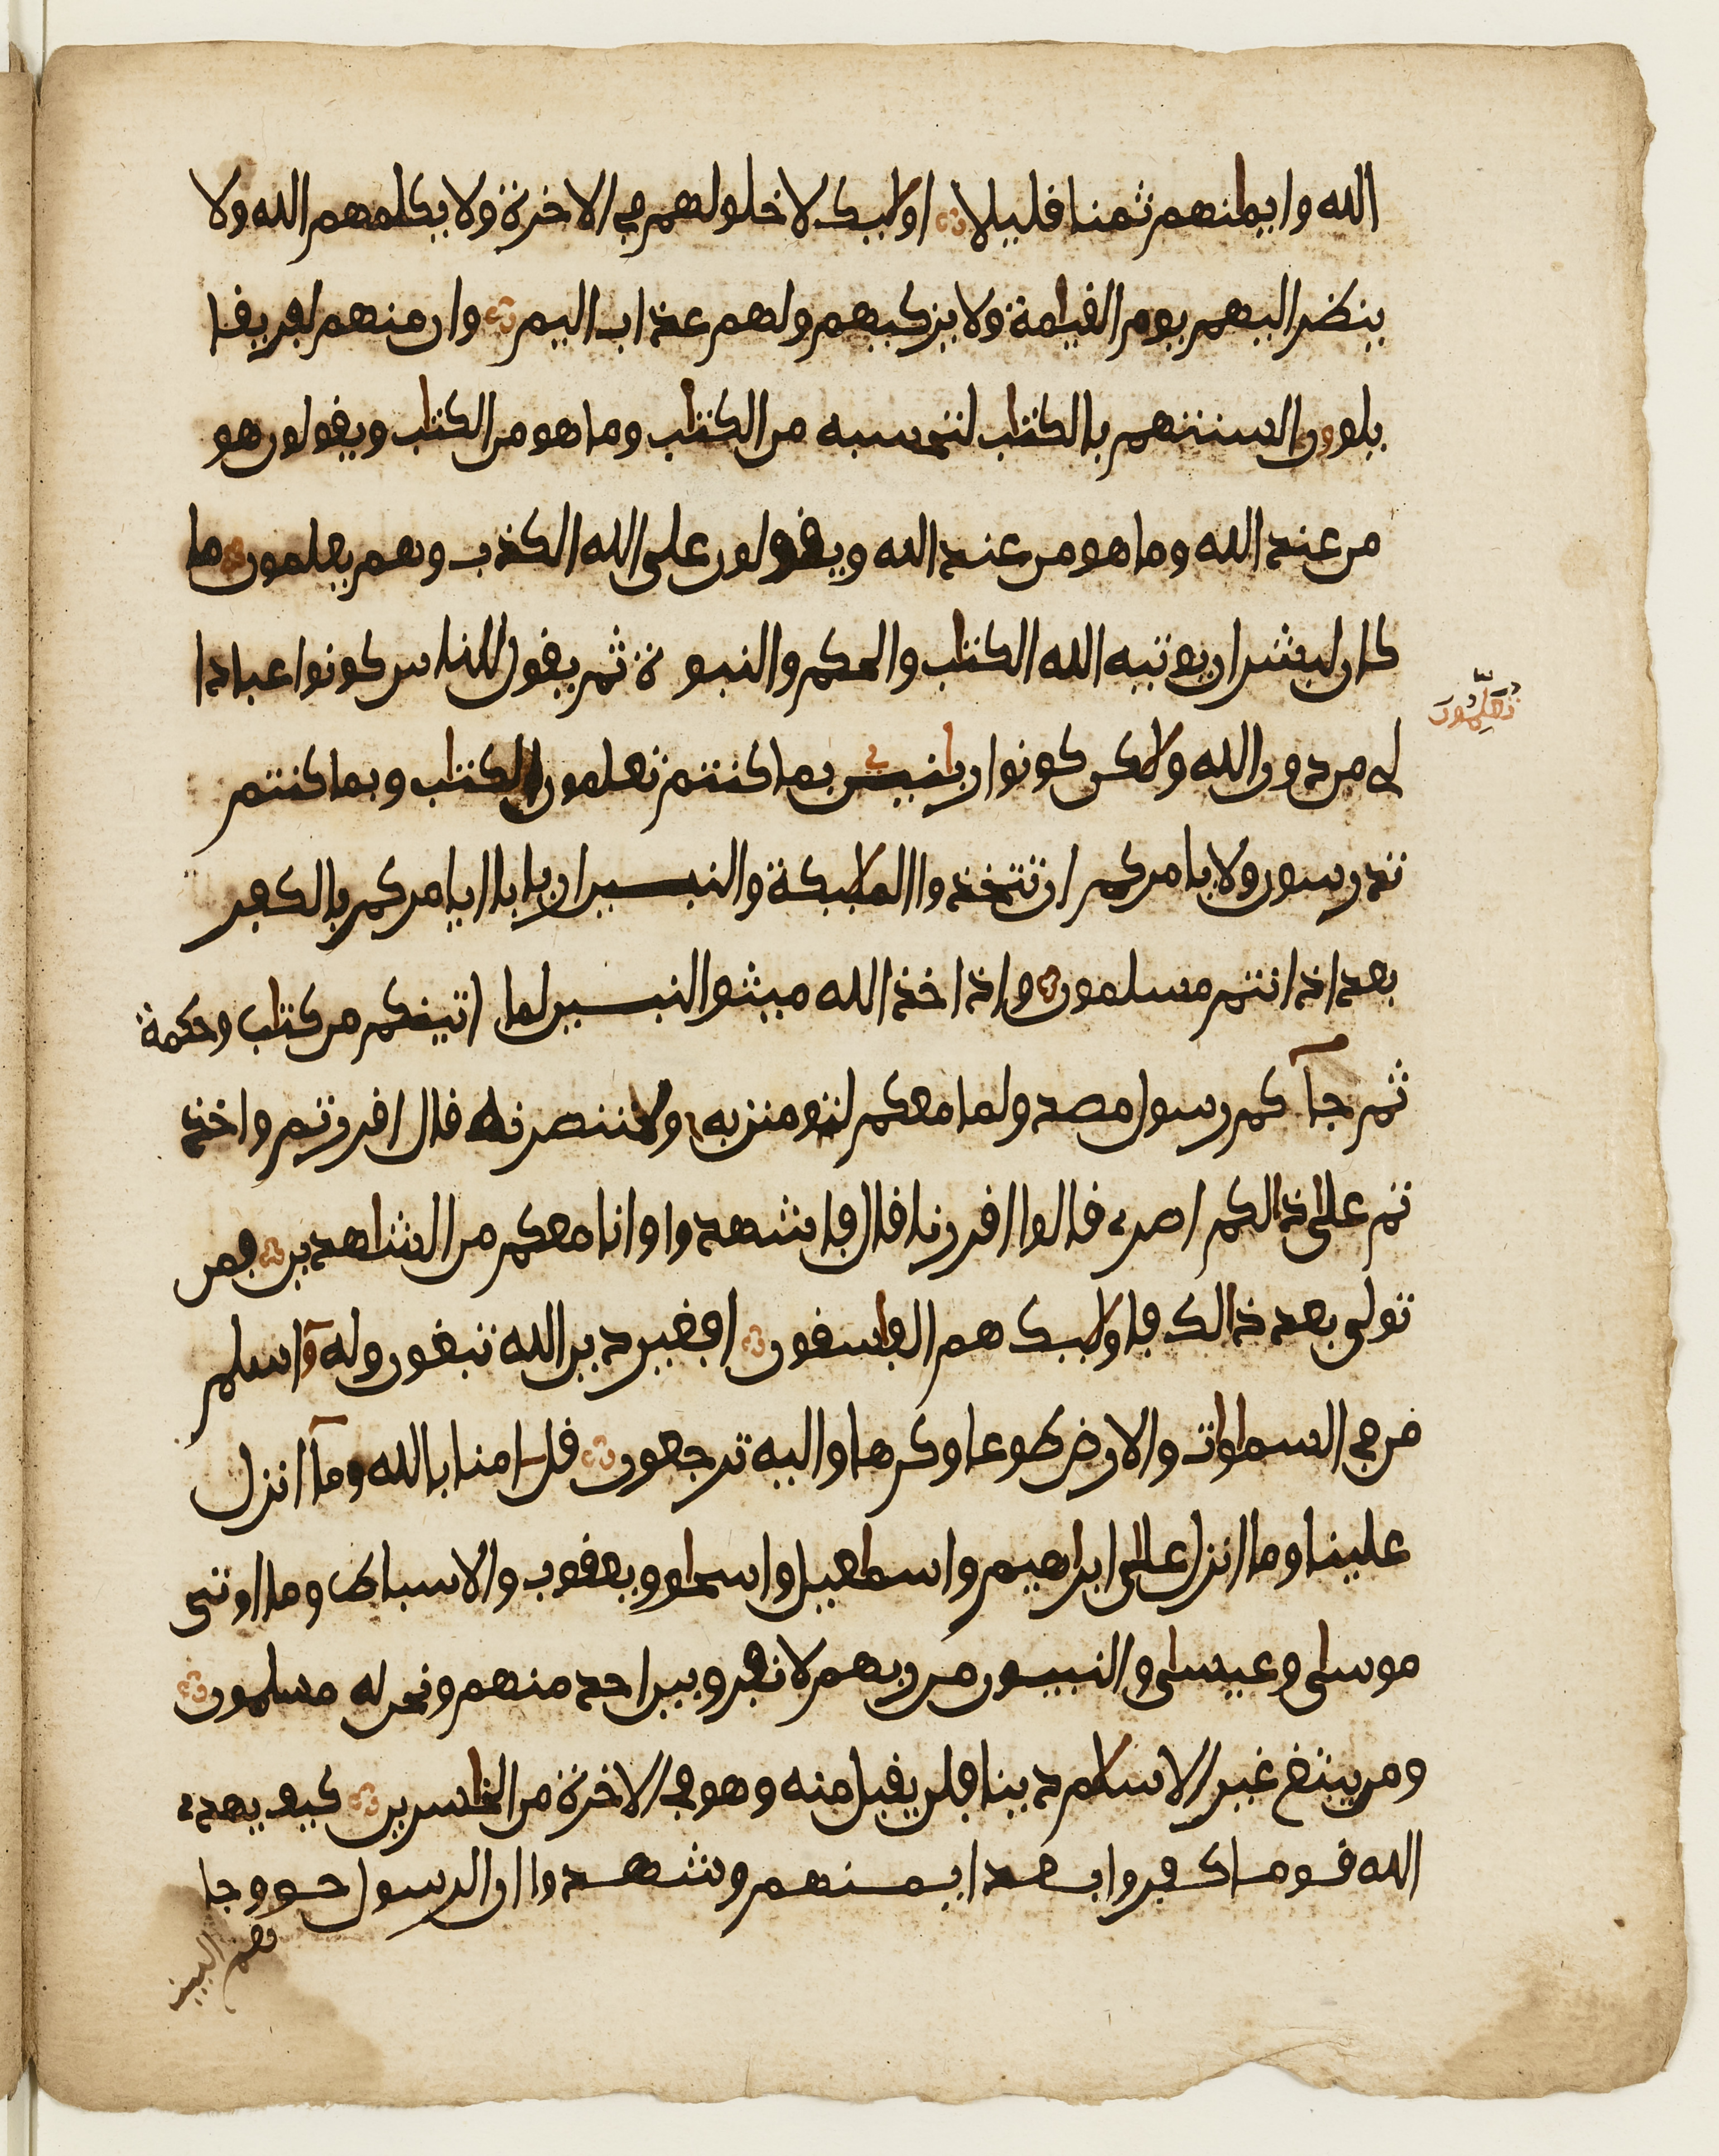 الله وايمنهم ثمنا قليلا اوليك لا خلو لهم في الاخرة ولا يكلمهم الله ولا
ينضر اليهم يوم القيمة ولا يزكيهم ولهم عذاب اليم وان منهم لفريقا
يلوون السنتهم بالكتب لتحسبه من الكتب وما هو من الكتب ويقولون هو
من عند الله وما هو من عند الله ويقولون على الله الكذب وهم يعلمون ما
كان لبشر ان يوتيه الله الكتب والحكم والنبوة ثم يقول للناس كونوا عبادا
لى من دون الله ولكن كونوا ربنين بما كنتم تعلمون الكتب وبما كنتم
تعلمون
تدرسون ولا يامركم ان تتخذوا الملبكة والنبين اربابا ايامركم بالكفر
بعد اذ انتم مسلمون واذ اخذ الله ميثو النبين لما اتينكم من كتب وحكمة
ثم جا كم رسول مصدو لما معكم لتومنن به ولتنصرنه قال اقررتم واخذ
تم على ذالكم اصرى قالوا اقررنا قال فاشهدوا وانا معكم من الشهدين فمن
تولى بعد ذالك فاوليك هم الفسقون افغير دين الله تبغون وله اسلم
من في السموات والارض طوعا وكرها واليه ترجعون قل امنا بالله وما انزل
علينا وما انزل على ابرهيم واسمعيل واسحو ويعقوب والاسباط وما اوتى
موسى وعيسى والنبيون من ربهم لا نفرو بين احد منهم ونحن له مسلمون
ومن يبتغ غير الاسلم دينا فلن يقبل منه وهو في الاخرة من الخسرين كيف يهدى
الله قوما كفروا بعد ايمنهم وشهدوا ان الرسول حو وجا
هم البينت